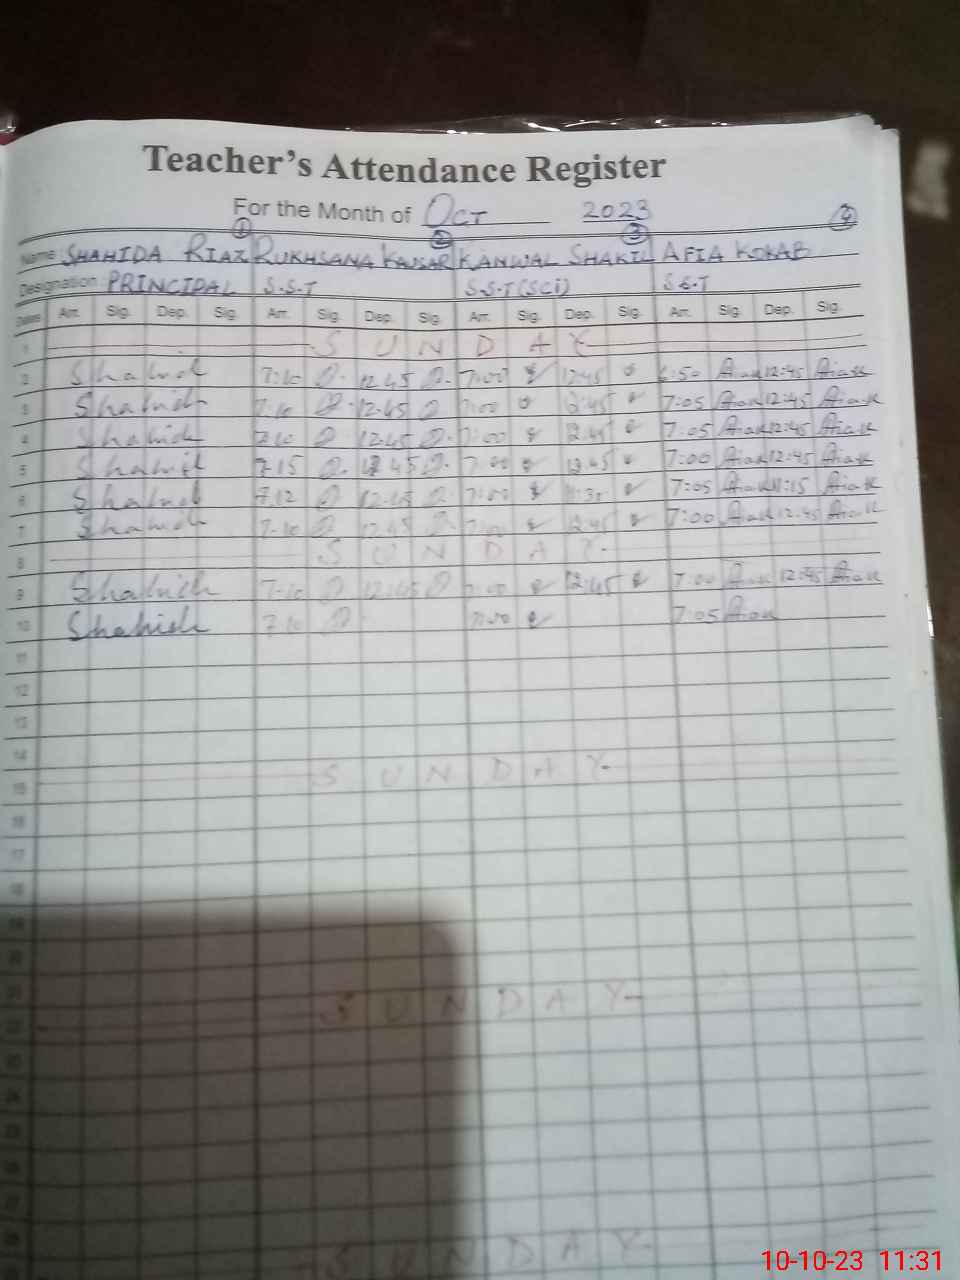 Teacher's Attendance Register
For the Month of OCT 2023
① ② ③ ④
Name SHAHIDA RIAZ RUKHSANA KAUSAR KANWAL SHAKIL AFIA KOKAB
Designation PRINCIPAL S.S.T S.S.T(SCi) S.S.T
Dates Arr. Sig. Dep. Sig. Arr. Sig. Dep. Sig. Arr. Sig. Dep. Sig. Arr. Sig. Dep. Sig.
1 SUNDAY
2 Shahid 7:10 12.45 7:00 12:45 6:50 12:45
3 Shahid 7.10 12.45 7:00 12:45 7:05 12:45
4 Shahid 7.10 12.45 7:00 12:45 7:05 12:45
5 Shahid 7.15 12 45 7:00 12.45 7:00 12:45
6 Shahid 7.12 12.45 7:00 11:30 7:05 11:15
7 Shahid 7.10 12.45 7:00 12:45 7:00 12:45
8 SUNDAY
9 Shahid 7.10 12:45 7:00 12:45 7:00 12:45
10 Shahid 7.10 7:00 7:05
11
12
13
14
15 SUNDAY
16
17
18
19
20
21
22 SUNDAY
23
24
25
26
27
28
SUNDAY
10-10-23 11:31